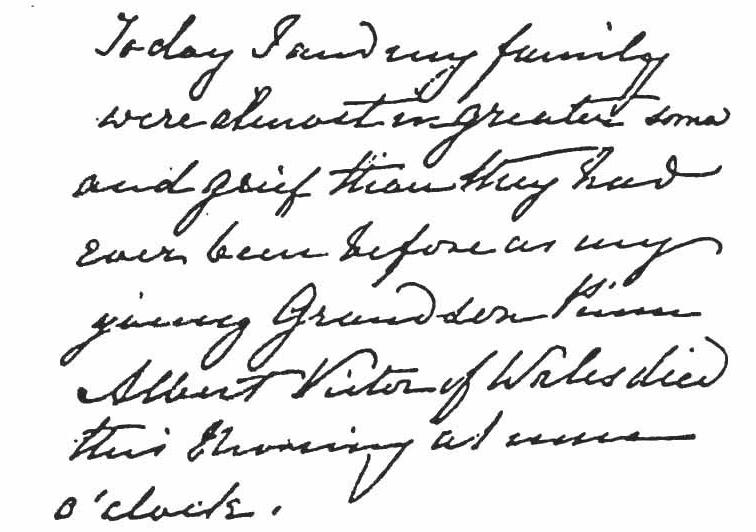 Today I and my family
were almost in greater
and grief than they had
ever been before as my
young Grandson
Albert Victor of Wales died
this Morning at nine
o'clock.